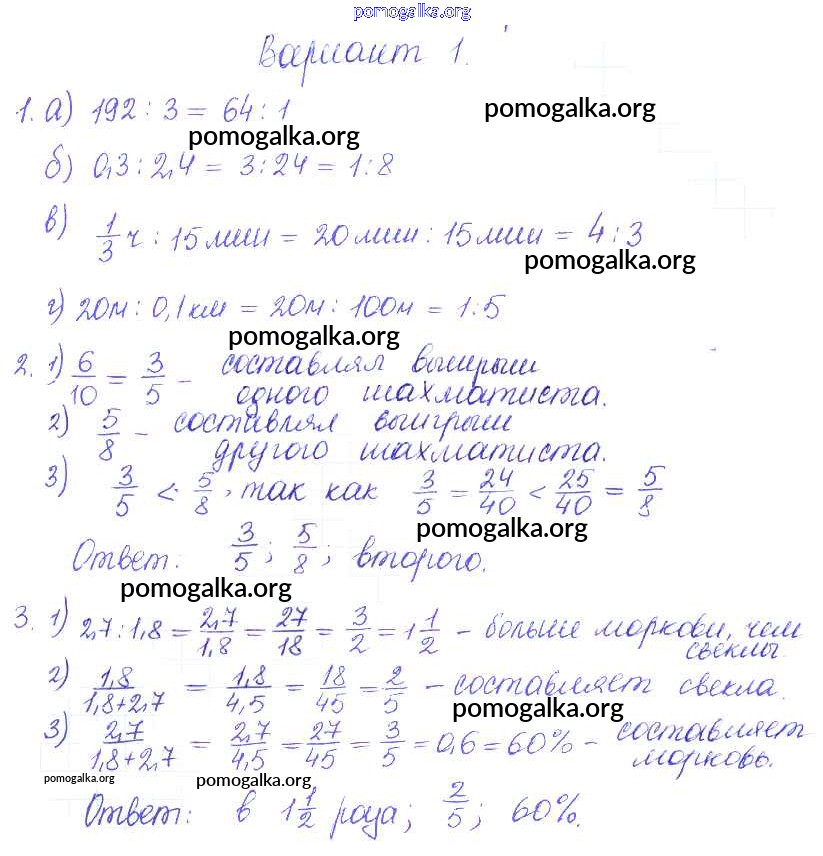 pomogalka.org
Вариант 1.
1. а) 192 : 3 = 64 : 1
pomogalka.org
pomogalka.org
б) 0,3 : 2,4 = 3 : 24 = 1 : 8
в) 1/3 ч : 15 мин = 20 мин : 15 мин = 4 : 3
pomogalka.org
г) 20м : 0,1 км = 20м : 100м = 1 : 5
pomogalka.org
2. 1) 6/10 = 3/5 - составлял выигрыш
одного шахматиста.
2) 5/8 - составлял выигрыш
другого шахматиста.
3) 3/5 < 5/8, так как 3/5 = 24/40 < 25/40 = 5/8
pomogalka.org
Ответ: 3/5; 5/8; второго.
pomogalka.org
3. 1) 2,7 : 1,8 = 2,7/1,8 = 27/18 = 3/2 = 1 1/2 - больше моркови, чем
свеклы.
2) 1,8/1,8+2,7 = 1,8/4,5 = 18/45 = 2/5 - составляет свекла.
pomogalka.org
3) 2,7/1,8+2,7 = 2,7/4,5 = 27/45 = 3/5 = 0,6 = 60% - составляет
морковь.
pomogalka.org
pomogalka.org
Ответ: в 1 1/2 раза; 2/5; 60%.